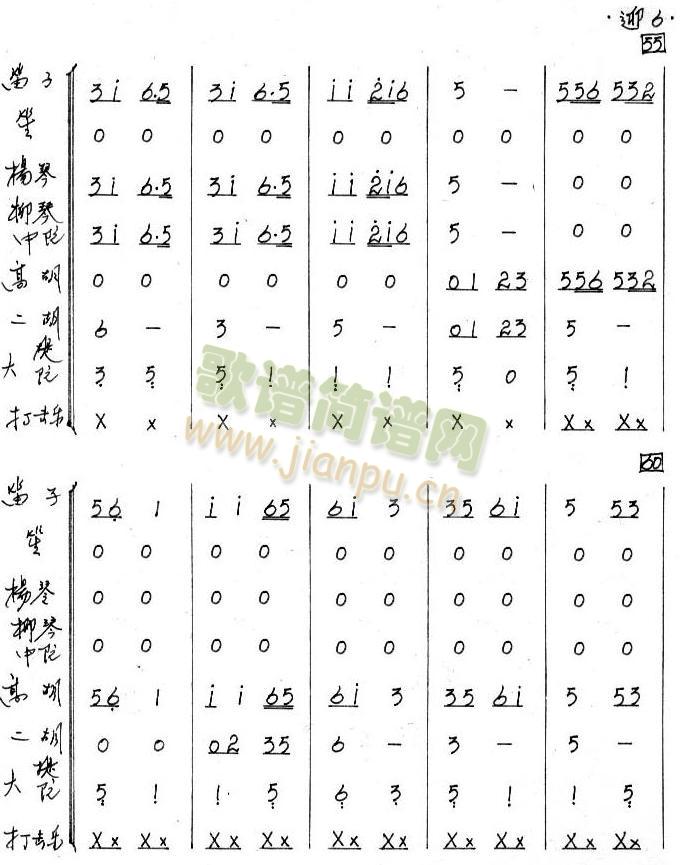 ·迎6·
55
笛子 3i 6·5 | 3i 6·5 | ii 2i6 | 5 - | 556 532
笙 0 0 | 0 0 | 0 0 | 0 0 | 0 0
楊琴 3i 6·5 | 3i 6·5 | ii 2i6 | 5 - | 0 0
柳琴
中阮 3i 6·5 | 3i 6·5 | ii 2i6 | 5 - | 0 0
高胡 0 0 | 0 0 | 0 0 | 01 23 | 556 532
二胡 6 - | 3 - | 5 - | 01 23 | 5 -
大阮 3 5 | 5 1 | 1 1 | 5 0 | 5 1
打击乐 X x | X x | X X | X x | Xx Xx
歌谱简谱网
www.jianpu.cn
60
笛子 56 1 | i i 65 | 6i 3 | 35 6i | 5 53
笙 0 0 | 0 0 | 0 0 | 0 0 | 0 0
楊琴 0 0 | 0 0 | 0 0 | 0 0 | 0 0
柳琴
中阮 0 0 | 0 0 | 0 0 | 0 0 | 0 0
高胡 56 1 | i i 65 | 6i 3 | 35 6i | 5 53
二胡 0 0 | 02 35 | 6 - | 3 - | 5 -
大阮 5 1 | 1· 5 | 6 3 | 5 1 | 1 5
打击乐 Xx Xx | Xx Xx | Xx Xx | Xx Xx | Xx Xx